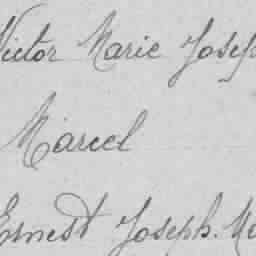 Victor Marie Joseph
Marcel
Ernest Joseph. Ma